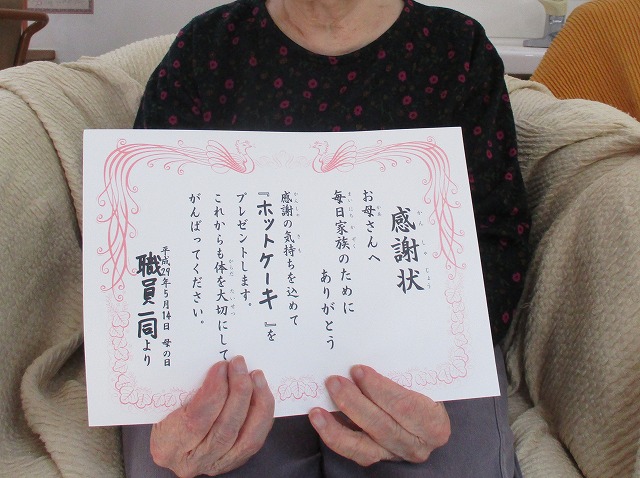 感謝状
お母さんへ
毎日家族のために
ありがとう
感謝の気持ちを込めて
『ホットケーキ』を
プレゼントします。
これからも体を大切にして
がんばってください。
平成29年5月14日 母の日
職員一同より